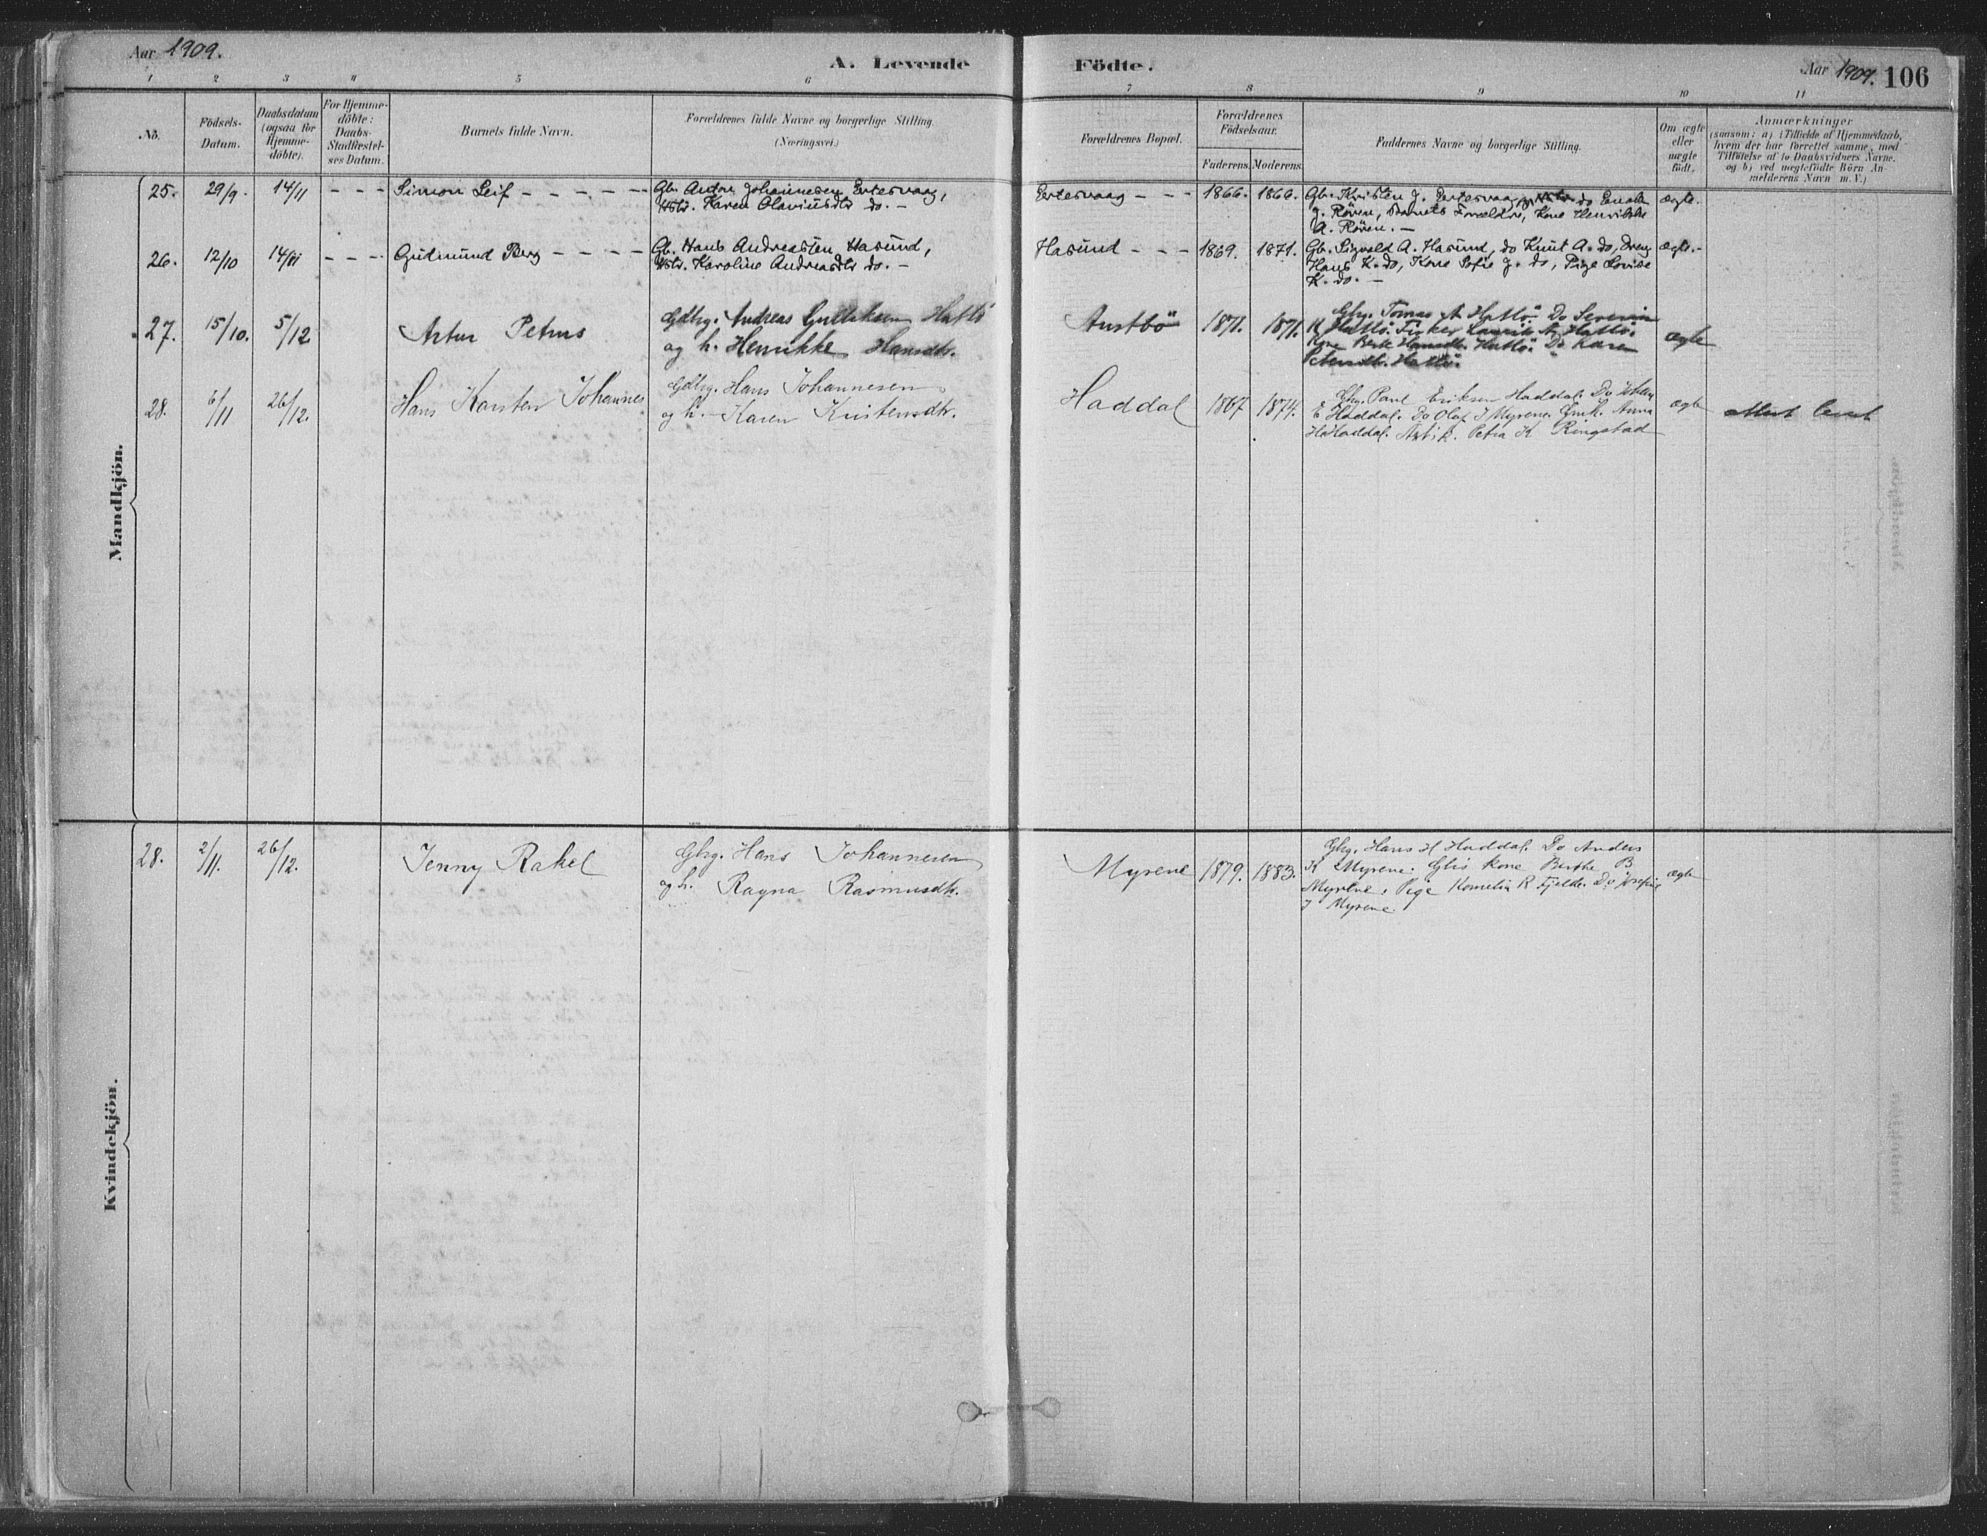 Aar 1909.
A. Levende Födte.
Aar 1909. 106
1 2 3 4 5 6 7 8 9 10 11
No.
Födsels-
Datum.
Daabsdatum
(ogsaa for
Hjemme-
döbte).
For Hjemme-
döbte:
Daabs-
Stadfæstel-
ses Datum.
Barnets fulde Navn.
Forældrenes fulde Navne og borgerlige Stilling.
(Næringsvei.)
Forældrenes Bopæl.
Forældrenes
Födselsaar.
Faderens. Moderens.
Faddernes Navne og borgerlige Stilling.
Om ægte
eller
uægte
födt.
Anmærkninger
(saasom: a) i Tilfælde af Hjemmedaab,
hvem der har forrettet samme, med
Tilföielse af to Daabsvidners Navne,
og b) ved uægtefödte Börn An-
melderens Navn m. V.)
Mandkjön.
25. 29/9 14/11 - - - Simon Leif - - - - - Gb. Anton Johannesen Eertesvaag,
Karen Olaviusdtr do. -
Eertesvaag - - - 1866. 1866. Gb. Kristen J. Eertesvaag, do
J. Rören, Barnets Forældre, Kone Henrikke
A. Rören. -
ægte.
26. 12/10 14/11 - - - Gudmund Berg - - - - Gb. Hans Andreassen Hasund,
Karoline Andreasdtr do. -
Hasund - - - 1869. 1871. Gb. Sigvald A. Hasund, do Knut A. do, Dreng
Hans K. do, Kone Sofie J. do, Pige Lovise
K. do. -
ægte.-
27. 15/10. 5/12 Artur Petrus Gdbrg. Andreas Gullaksen Hattö
og h. Henrikke Hansdtr.
Austbö 1871. 1871. Gbrg. Tomas A Hattö. Do Severin
K Hattö. Fisker Laurits A. Hattö.
Kone Berte Hansdtr. Hattö. Do Karen
Hattö.
ægte
28. 6/11 26/12. Hans Karsten Johannes Gdbrg. Hans Johannesen
og h. Karen Kristensdtr.
Haddal 1867 1874. Gbrg. Paul Eriksen Haddal. Do
E Haddal. Do Olaf J Myrene. Anna
H Haddal. Petra K Ringstad
ægte
Kvindekjön.
28. 2/11. 26/12. Jenny Rakel Gbrg. Hans Johannesen
og h. Ragna Rasmusdtr.
Myrene 1879. 1883. Gbrg. Hans H Haddal. Do Anders
K Myrene. Gbrs kone Berthe B
Myrene. Pige Kornelia R Fjelde. Do Josefine
J Myrene.
ægte